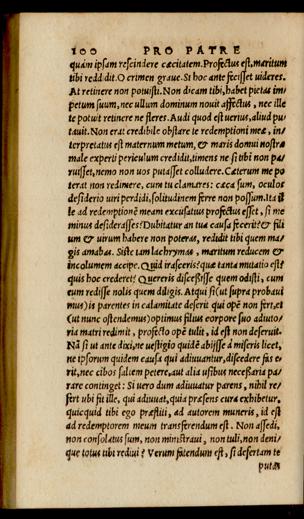 100 PRO PATRE
quàm ipsam rescindere cæcitatem. Profectus est, maritum
tibi reddidit. O crimen graue. Si hoc ante fecisset uideres.
At retinere non potuisti. Non dicam tibi, habet pietas im/
petum suum, nec ullum dominum nouit affectus, nec ille
te potuit retinere ne fleres. Audi quod est uerius, aliud pu/
tauit. Non erat credibile obstare te redemptioni meæ, in/
terpretatus est maternum metum, & maris domui nostræ
male experti periculum credidit, timens ne si tibi non pa/
ruisset, nemo non uos putasset colludere. Cæterum me po
terat non redimere, cum tu clamares: cæca sum, oculos
desiderio uiri perdidi, solitudinem ferre non possum. Ita il
le ad redemptionē meam excusatius profectus esset, si me
minus desiderasses? Dubitatur an tua causa fecerit? & fili
um & uirum habere non poteras, reddidit tibi quem ma/
gis amabas. Siste iam lachrymas, maritum reducem &
incolumem accipe. Quid irasceris? quæ tanta mutatio est?
quis hoc crederet? Quereris discessisse quem odisti, cum
eum redisse nolis quem diligis. Atqui si (ut supra probaui
mus) is parentes in calamitate deserit qui opē non fert, et
(ut nunc ostendemus) optimus filius corpore suo adiuto/
ria matri redimit, profecto opē tulit, id est non deseruit.
Nā si ut ante dixi, ne uestigio quidē abijsse à miseris licet,
ne ipsorum quidem causa qui adiuuantur, discedere fas e/
rit, nec cibos saltem petere, aut alia usibus necessaria pa/
rare continget: Si uero dum adiuuatur parens, nihil re/
fert ubi fit ille, qui adiuuat, quia præsens cura exhibetur,
quicquid tibi ego præstiti, ad autorem muneris, id est
ad redemptorem meum transferendum est. Non assedi,
non consolatus sum, non ministraui, non tuli, non deni/
que totus tibi rediui? Verum fatendum est, si desertam te
putas